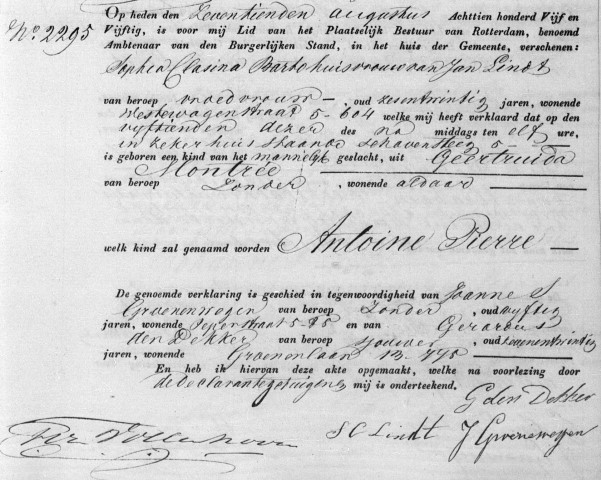 No. 2295
Op heden den Zeventienden augustus Achttien honderd Vijf en
Vijftig, is voor mij Lid van het Plaatselijk Bestuur van Rotterdam, benoemd
Ambtenaar van den Burgerlijken Stand, in het huis der Gemeente, verschenen:
Sophia Clasina Barbe huisvrouw van Jan Lindt
van beroep vroedvrouw — , oud zesentwintig jaren, wonende
Westewagenstraat 5-604 welke mij heeft verklaard dat op den
vyftienden dezer des na middags ten elf ure,
in zeker huis staande 5-
is geboren een kind van het mannelyk geslacht, uit Geertruida
Montrée
van beroep Zonder , wonende aldaar
welk kind zal genaamd worden Antoine Pierre —
De genoemde verklaring is geschied in tegenwoordigheid van Joannes
Groenewegen van beroep Zonder , oud vyftig
jaren, wonende Peperstraat 5-95 en van Gerardus
den Dekker van beroep sjouwer , oud zevenentwintig
jaren, wonende Groenenlaan 13-775
En heb ik hiervan deze akte opgemaakt, welke na voorlezing door
de Declarante getuigen & mij is onderteekend.
G den Dekker
S C Lindt J Groenewegen